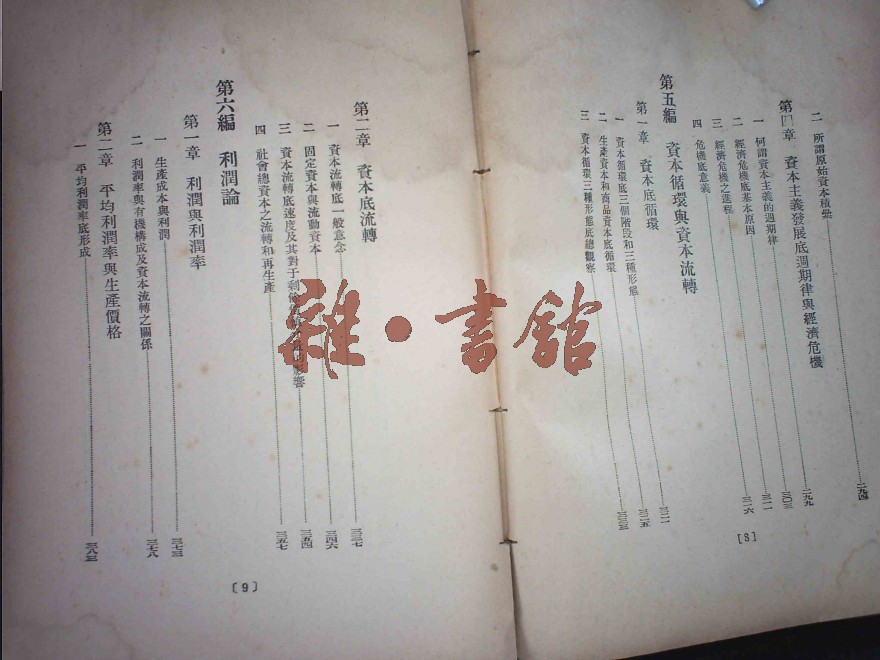 二 所謂原始資本積纍……二九四
第四章 資本主義發展底週期律與經濟危機
一 何謂資本主義的週期律……二九九
二 經濟危機底基本原因……三〇三
三 經濟危機之進程……三一一
四 危機底意義……三一六
第五編 資本循環與資本流轉
第一章 資本底循環
一 資本循環底三個階段和三種形態……三二一
二 生產資本和商品資本底循環……三二五
三 資本循環三種形態底總觀察……三三三
[8]
第二章 資本底流轉
一 資本流轉底一般意念……三三七
二 固定資本與流動資本……三四六
三 資本流轉底速度及其對于剩餘影響……三五四
四 社會總資本之流轉和再生產……三五七
第六編 利潤論
第一章 利潤與利潤率
一 生產成本與利潤……三七三
二 利潤率與有機構成及資本流轉之關係……三七八
第二章 平均利潤率與生產價格
一 平均利潤率底形成……三八三
[9]
雜·書舘